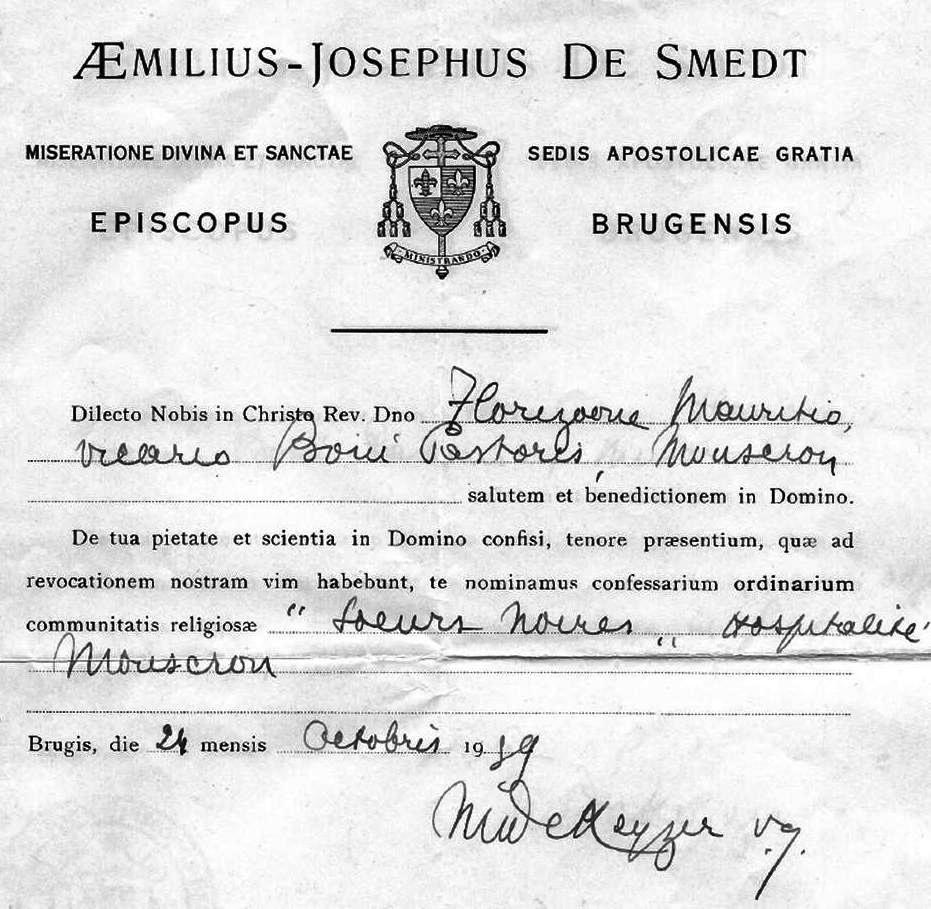 ÆMILIUS-JOSEPHUS DE SMEDT
MISERATIONE DIVINA ET SANCTAE SEDIS APOSTOLICAE GRATIA
EPISCOPUS BRUGENSIS
MINISTRANDO
Dilecto Nobis in Christo Rev. Dno Florizoone Mauritio,
vicario Boni Pastoris, Mouscron
salutem et benedictionem in Domino.
De tua pietate et scientia in Domino confisi, tenore præsentium, quæ ad
revocationem nostram vim habebunt, te nominamus confessarium ordinarium
communitatis religiosæ "Soeurs Noires" Hospitalité
Mouscron
Brugis, die 24 mensis Octobris 1959
De Keyzer v.g.